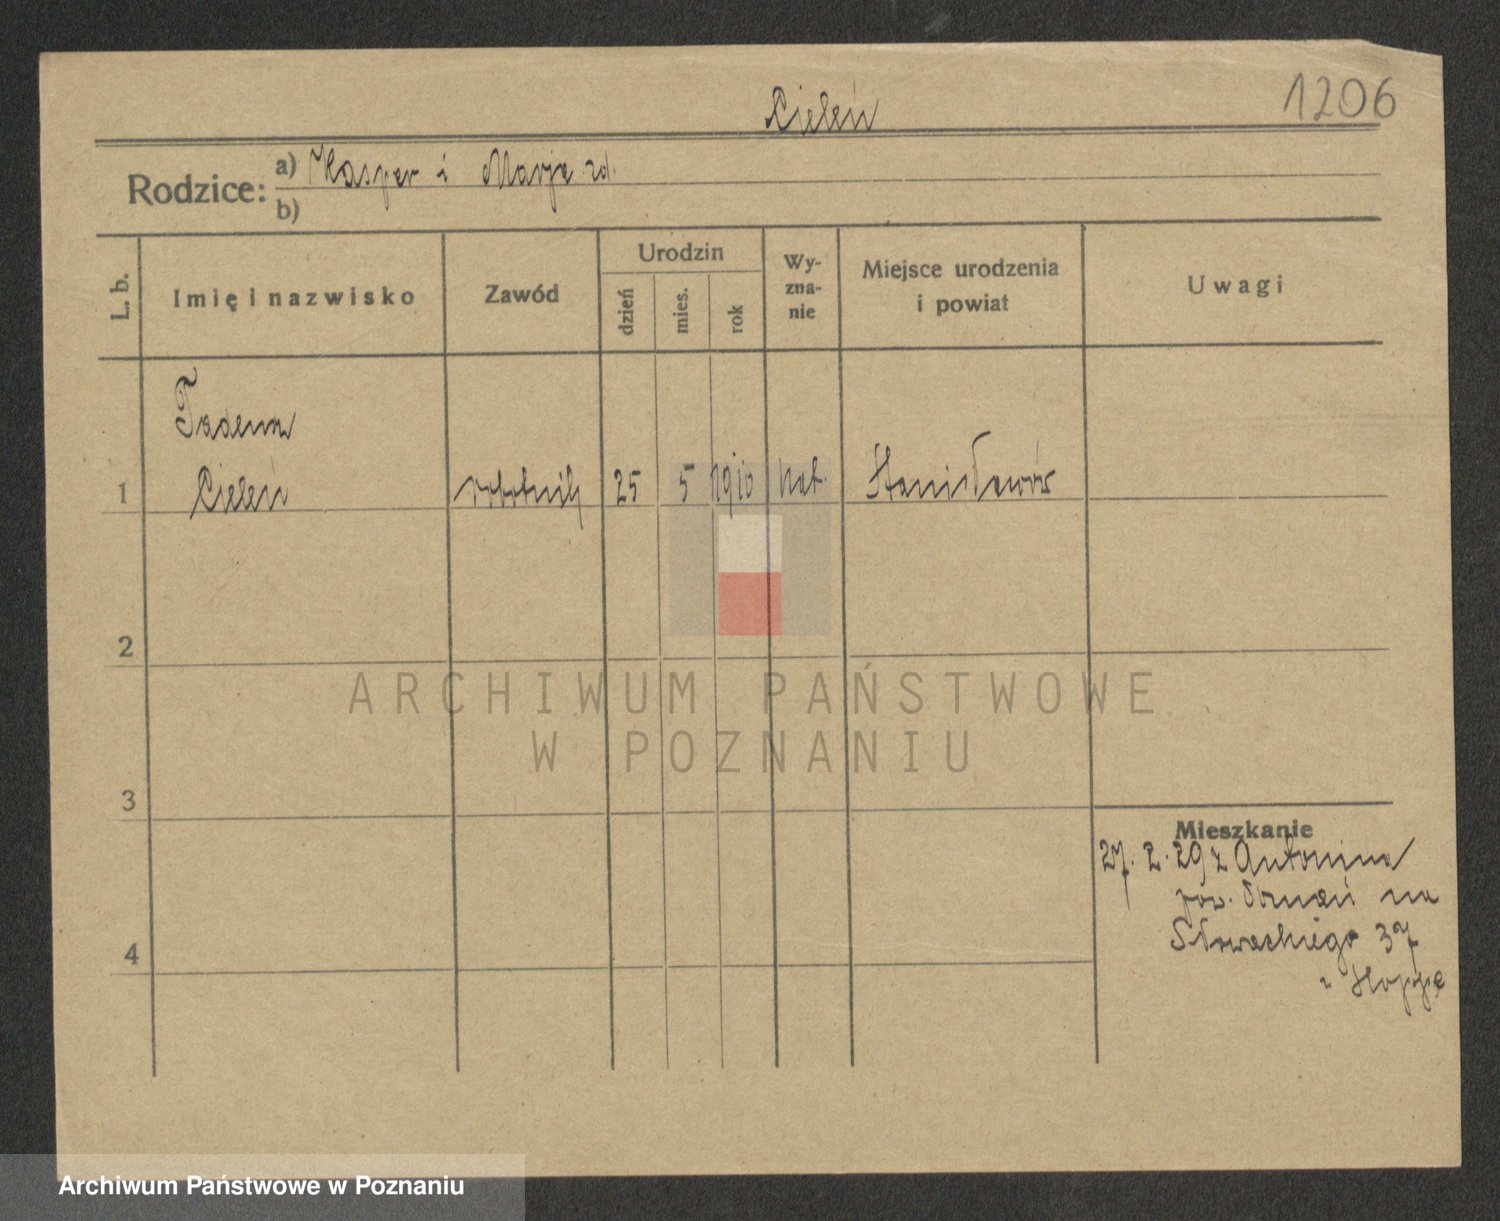 1206
Cieleń
Rodzice: a) Kasper i Marja zd.
b)
L. b.
Imię i nazwisko
Zawód
Urodzin
dzień
mies.
rok
Wy-
zna-
nie
Miejsce urodzenia
i powiat
Uwagi
Tadeusz
1 Cieleń robotnik 25 5 1910 kat. Stanisławów
2
ARCHIWUM PAŃSTWOWE
W POZNANIU
3
Mieszkanie
27. 2. 29 z Antonina
pow. Poznań na
4
Słowackiego 37
u Hoppe
Archiwum Państwowe w Poznaniu